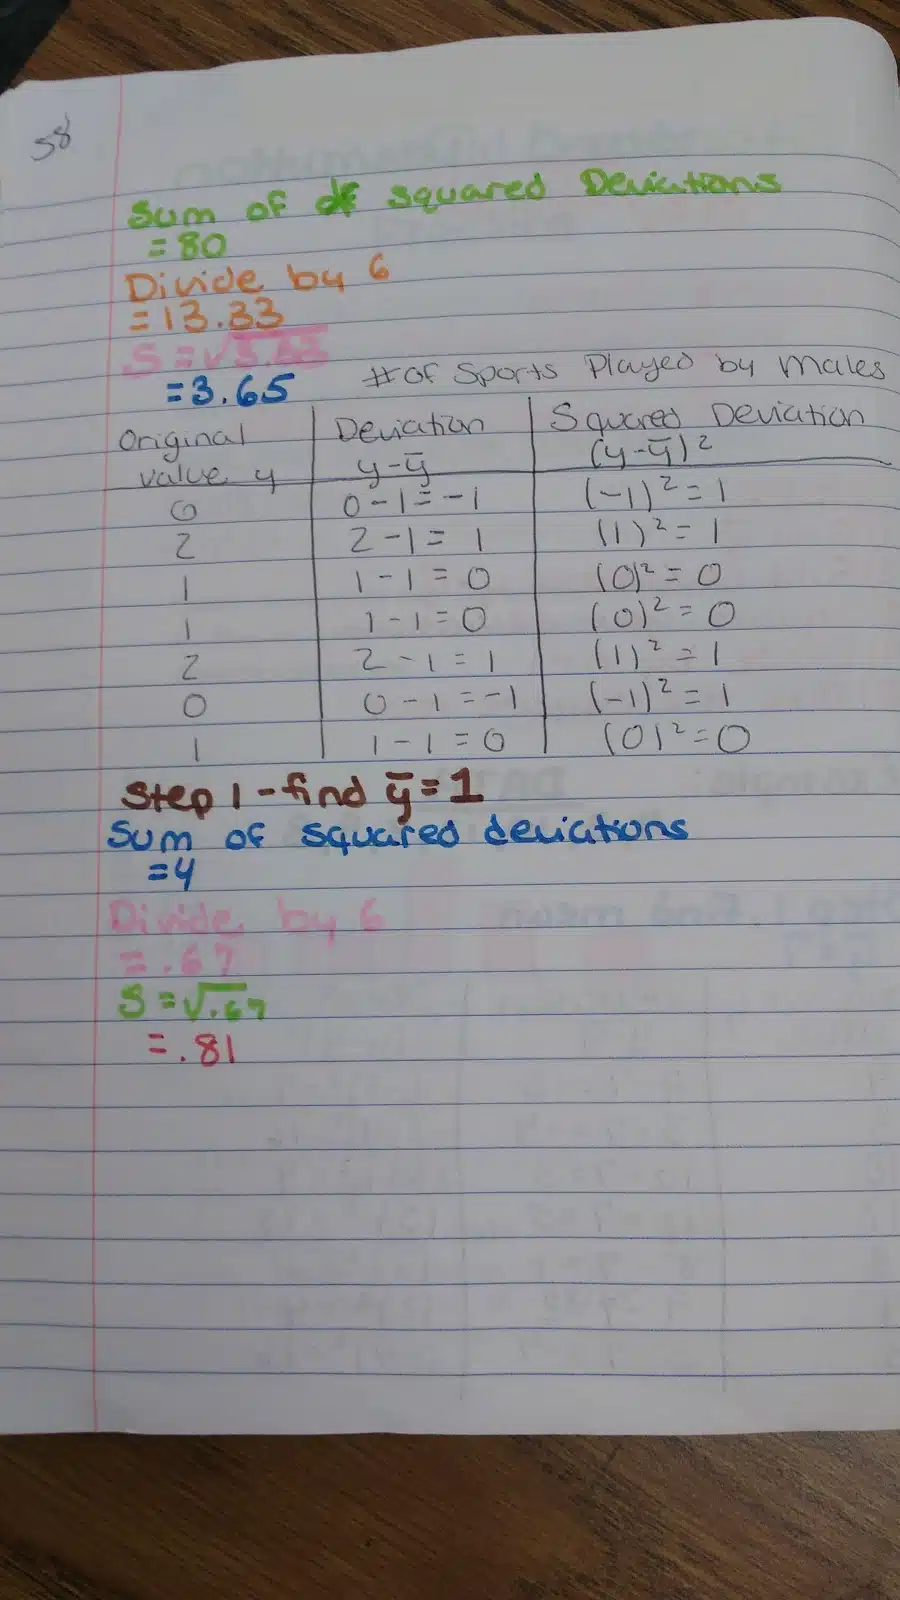 58
Sum of df squared Deviations
= 80
Divide by 6
= 13.33
S = √
= 3.65
# of Sports Played by Males
Original value y | Deviation y-ȳ | Squared Deviation (y-ȳ)²
0 | 0-1=-1 | (-1)²=1
2 | 2-1=1 | (1)²=1
1 | 1-1=0 | (0)²=0
1 | 1-1=0 | (0)²=0
2 | 2-1=1 | (1)²=1
0 | 0-1=-1 | (-1)²=1
1 | 1-1=0 | (0)²=0
Step 1 - find ȳ=1
Sum of squared deviations
=4
Divide by 6
=.67
S=√.67
=.81